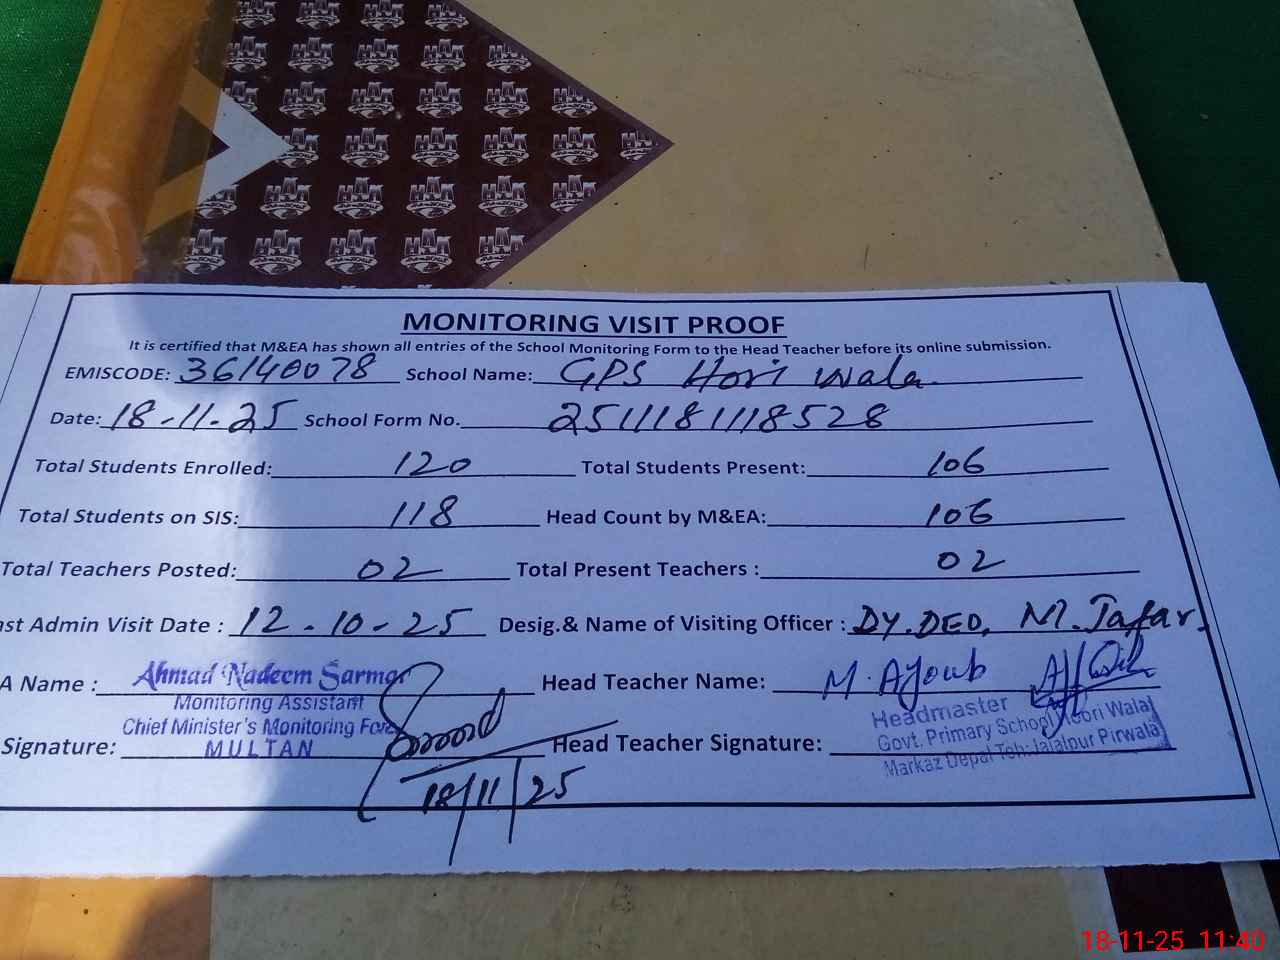 MONITORING VISIT PROOF
It is certified that M&EA has shown all entries of the School Monitoring Form to the Head Teacher before its online submission.
EMISCODE: 36140078 School Name: GPS Hori wala
Date: 18-11-25 School Form No. 2511181118528
Total Students Enrolled: 120 Total Students Present: 106
Total Students on SIS: 118 Head Count by M&EA: 106
Total Teachers Posted: 02 Total Present Teachers : 02
ast Admin Visit Date : 12-10-25 Desig.& Name of Visiting Officer : DY.DEO, M.Jafar
A Name : Ahmad Nadeem Sarmar Head Teacher Name: M. Ayoub
Monitoring Assistant
Chief Minister's Monitoring Force
MULTAN
Signature: Head Teacher Signature:
Headmaster
Govt. Primary School Noori Wala
Markaz Depal Teh: Jalalpur Pirwala
18/11/25
18-11-25 11:40